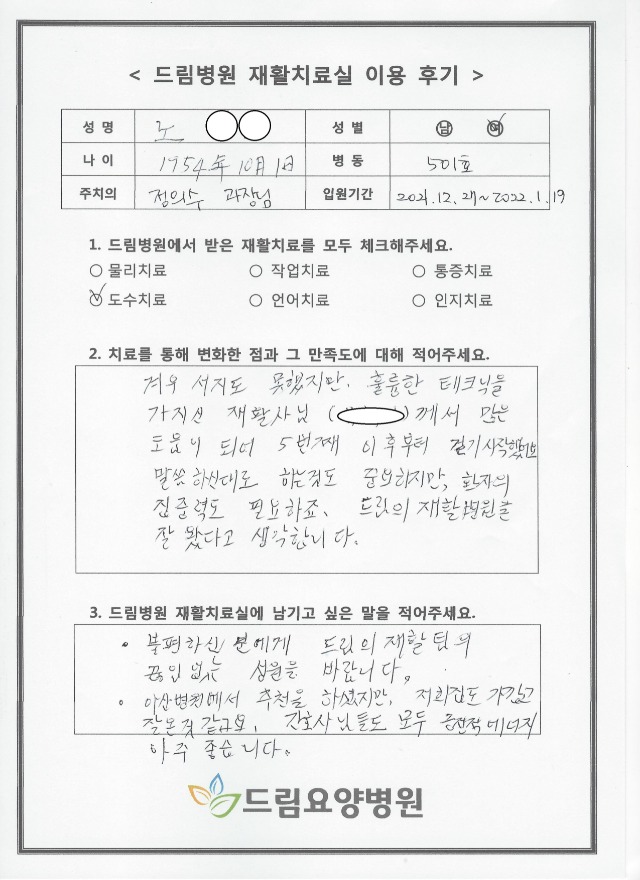 < 드림병원 재활치료실 이용 후기 >
성 명 노 성 별 남 여
나 이 1954年 10月 1日 병 동 501호
주치의 정의수 과장님 입원기간 2021.12.27~2022.1.19
1. 드림병원에서 받은 재활치료를 모두 체크해주세요.
물리치료 작업치료 통증치료
도수치료 언어치료 인지치료
2. 치료를 통해 변화한 점과 그 만족도에 대해 적어주세요.
겨우 서지도 못했지만. 훌륭한 테크닉을
가지신 재활사님 ( )께서 많은
도움이 되어 5번째 이후부터 걷기시작했어요
말씀하신대로 하는것도 중요하지만, 환자의
집중력도 필요하죠. 드림의 재활병원을
잘 왔다고 생각합니다.
3. 드림병원 재활치료실에 남기고 싶은 말을 적어주세요.
• 불편하신 분에게 드림의 재활팀의
끊임없는 성원을 바랍니다,
• 아산병원에서 추천을 하셨지만, 저희집도 가깝고
잘온것 같구요, 간호사님들도 모두 긍정적 에너지
아주 좋습니다.
드림요양병원